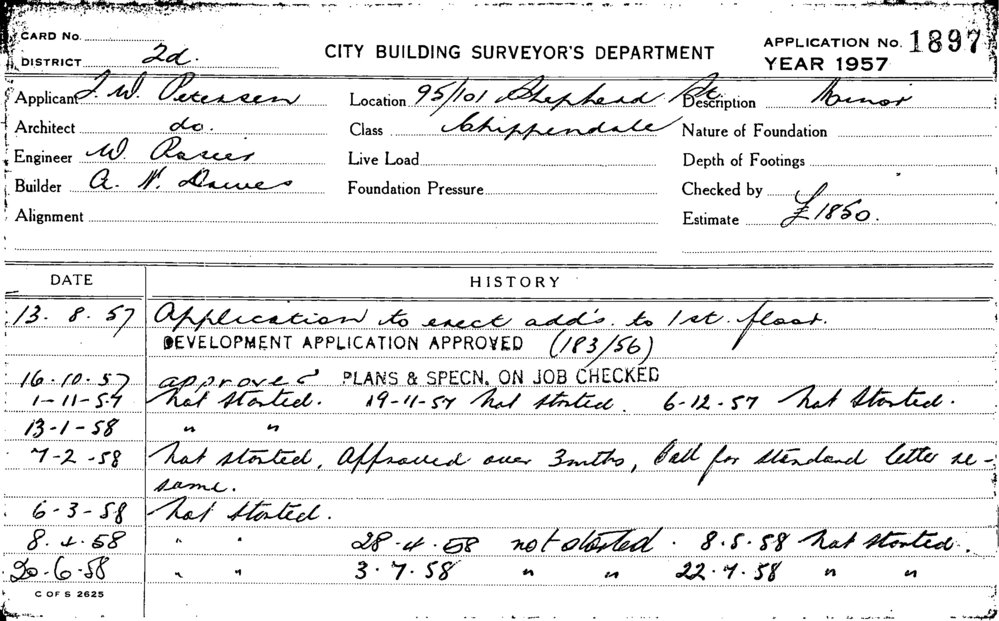 CARD No.
DISTRICT 2d.
CITY BUILDING SURVEYOR'S DEPARTMENT
APPLICATION No. 1897
YEAR 1957
Applicant J. W. Petersen Location 95/101 Shepherd St Description Minor
Architect do. Class Chippendale Nature of Foundation
Engineer W. Live Load Depth of Footings
Builder A. N. Dawes Foundation Pressure Checked by
Alignment Estimate £1850.
DATE HISTORY
13. 8. 57 Application to erect add's. to 1st. floor.
DEVELOPMENT APPLICATION APPROVED (183/56)
16.10.57 approved PLANS & SPECN. ON JOB CHECKED
1-11-57 Not started. 19-11-57 Not started. 6-12-57 Not started.
13-1-58 " "
7-2-58 Not started, Approved over 3mths, Call for standard letter re-
same.
6-3-58 Not started.
8.4.58 " " 28.4.58 not started. 8.5.58 Not started.
20.6.58 " " 3.7.58 " " 22.7.58 " "
C OF S 2625